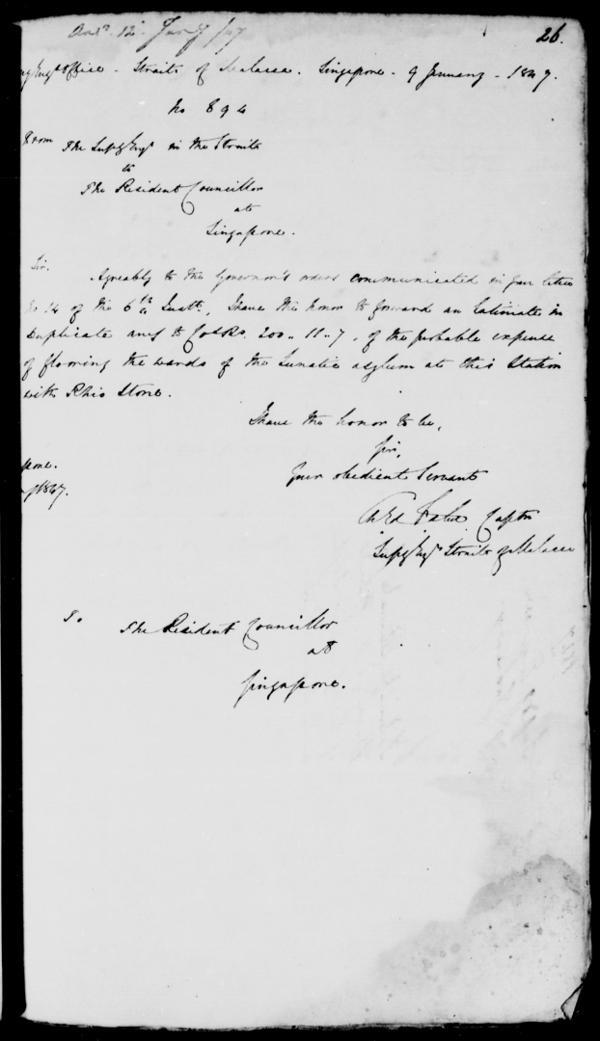 Ansd. 12 Jany /47
26.
Office - Straits of Malacca. Singapore - 9 January - 1847.
No 894
From The Supg Engr in the Straits
to
The Resident Councillor
at
Singapore.
Sir.
Agreably to the Governor's orders communicated in your letter
No 14 of the 6th Inst., I have the honor to forward an Estimate in
Duplicate amg to Co's Rs. 200.. 11..7, of the probable expense
of flooring the wards of the Lunatic asylum at this Station
with Rhio Stone.
I have the honor to be,
Sir,
Your obedient Servant
Captn
Supg Engr Straits of Malacca
pore.
1847.
To
The Resident Councillor
at
Singapore.